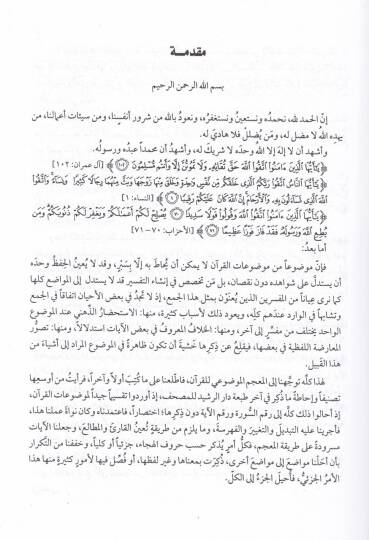 مقدمـة
بسم الله الرحمن الرحيم
إنّ الحمد لله، نحمدُه ونستعينُ ونستغفرُه، ونعوذُ بالله من شرور أنفسِنا، ومن سيئات أعمالنا، من
يهدِه اللهُ لا مضل له، ومَن يُضلل فلا هاديَ له.
وأشهد أن لا إلهَ إلا اللهُ وحدَه لا شريكَ له، وأشهدُ أن محمداً عبدُه ورسولُه.
﴿يَٰٓأَيُّهَا ٱلَّذِينَ ءَامَنُواْ ٱتَّقُواْ ٱللَّهَ حَقَّ تُقَاتِهِۦ وَلَا تَمُوتُنَّ إِلَّا وَأَنتُم مُّسۡلِمُونَ ۝١٠٢﴾ [آل عمران: ١٠٢]
﴿يَٰٓأَيُّهَا ٱلنَّاسُ ٱتَّقُواْ رَبَّكُمُ ٱلَّذِي خَلَقَكُم مِّن نَّفۡسٖ وَٰحِدَةٖ وَخَلَقَ مِنۡهَا زَوۡجَهَا وَبَثَّ مِنۡهُمَا رِجَالٗا كَثِيرٗا وَنِسَآءٗۚ وَٱتَّقُواْ
ٱللَّهَ ٱلَّذِي تَسَآءَلُونَ بِهِۦ وَٱلۡأَرۡحَامَۚ إِنَّ ٱللَّهَ كَانَ عَلَيۡكُمۡ رَقِيبٗا ۝١﴾ [النساء: ١]
﴿يَٰٓأَيُّهَا ٱلَّذِينَ ءَامَنُواْ ٱتَّقُواْ ٱللَّهَ وَقُولُواْ قَوۡلٗا سَدِيدٗا ۝٧٠ يُصۡلِحۡ لَكُمۡ أَعۡمَٰلَكُمۡ وَيَغۡفِرۡ لَكُمۡ ذُنُوبَكُمۡۗ وَمَن
يُطِعِ ٱللَّهَ وَرَسُولَهُۥ فَقَدۡ فَازَ فَوۡزًا عَظِيمًا ۝٧١﴾ [الأحزاب: ٧٠-٧١]
أما بعدُ:
فإنّ موضوعاً من موضوعات القرآن لا يمكن أن يُحاطَ به إلّا بِسَبْرٍ، وقد لا يُعينُ الحِفظُ وحدَه
أن يستدلَّ على شواهده دون نقصان، بل مَن تخصص في إنشاء التفسير قد لا يستدل إلى المواضع كلها
كما نرى عِياناً من المفسرين الذين يُعنَوْن بمثل هذا الجمع، إذ لا تجدُ في بعض الأحيان اتفاقاً في الجمع
وتشابهاً في الوارد عندَهم كلِّه، ويعود ذلك لأسباب كثيرة، منها: الاستحضارُ الذهني عند الموضوع
الواحد يختلف من مفسِّر إلى آخر، ومنها: الخلافُ المعروفُ في بعض الآيات استدلالاً، ومنها: تصوُّر
المعارضة اللفظية في بعضها، فيقلعُ عن ذِكرِها خشيةَ أن تكون ظاهرةً في الموضوع المراد إلى أشياءَ من
هذا القَبيل.
لهذا كلِّه توجّهنا إلى المعجم الموضوعي للقرآن، فاطّلعنا على ما كُتِبَ أولاً وآخراً، فرأيتُ من أوسعِها
تصنيفاً وإحاطةً ما ذُكِرَ في آخر طبعة دار الرشيد للمصحف، إذ أوردوا تقسيماً جيداً لموضوعات القرآن،
إذ أحالوا ذلك كلَّه إلى رقم السورة ورقم الآية دون ذِكرِها؛ اختصاراً، فاعتمدناه، وكان نواةَ عملنا هذا،
فأجرينا عليه التبديلَ والتغييرَ والفهرسةَ، وما يلزم من طريقةٍ تُعينُ القارئَ والمطالعَ، وجعلنا الآيات
مسرودةً على طريقة المعجم، فكلُّ أمرٍ يُذكر حسب حروف الهجاء، جزئياً أو كلياً، وخففنا من التَّكرار
بأن أحَلْنا مواضعَ إلى مواضعَ أخرى، ذُكِرَت بمعناها وغير لفظها، أو فُصِّل فيها لأمورٍ كثيرةٍ منها هذا
الأمرُ الجزئيُّ، فأُحيلَ الجزءُ إلى الكلّ.